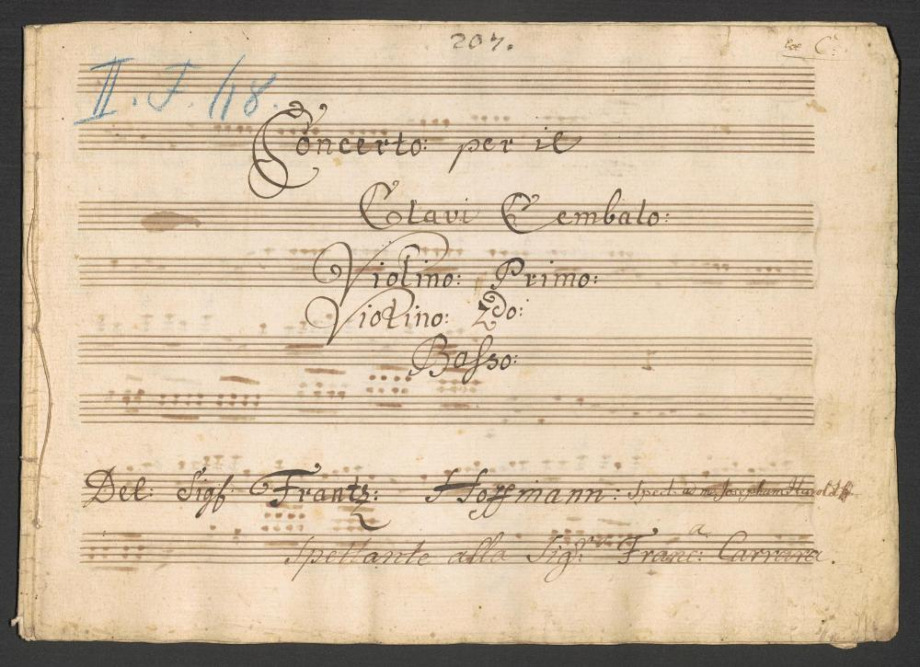 207.
ex C
II. F. 118.
Concerto: per il
Clavi Cembalo:
Violino: Primo:
Violino: 2do:
Basso:
Del: Sigr Frantz: Hoffmann: Spect. ad me Josephum Harold
Spettante alla Sig:ra Franc:a Carrara.